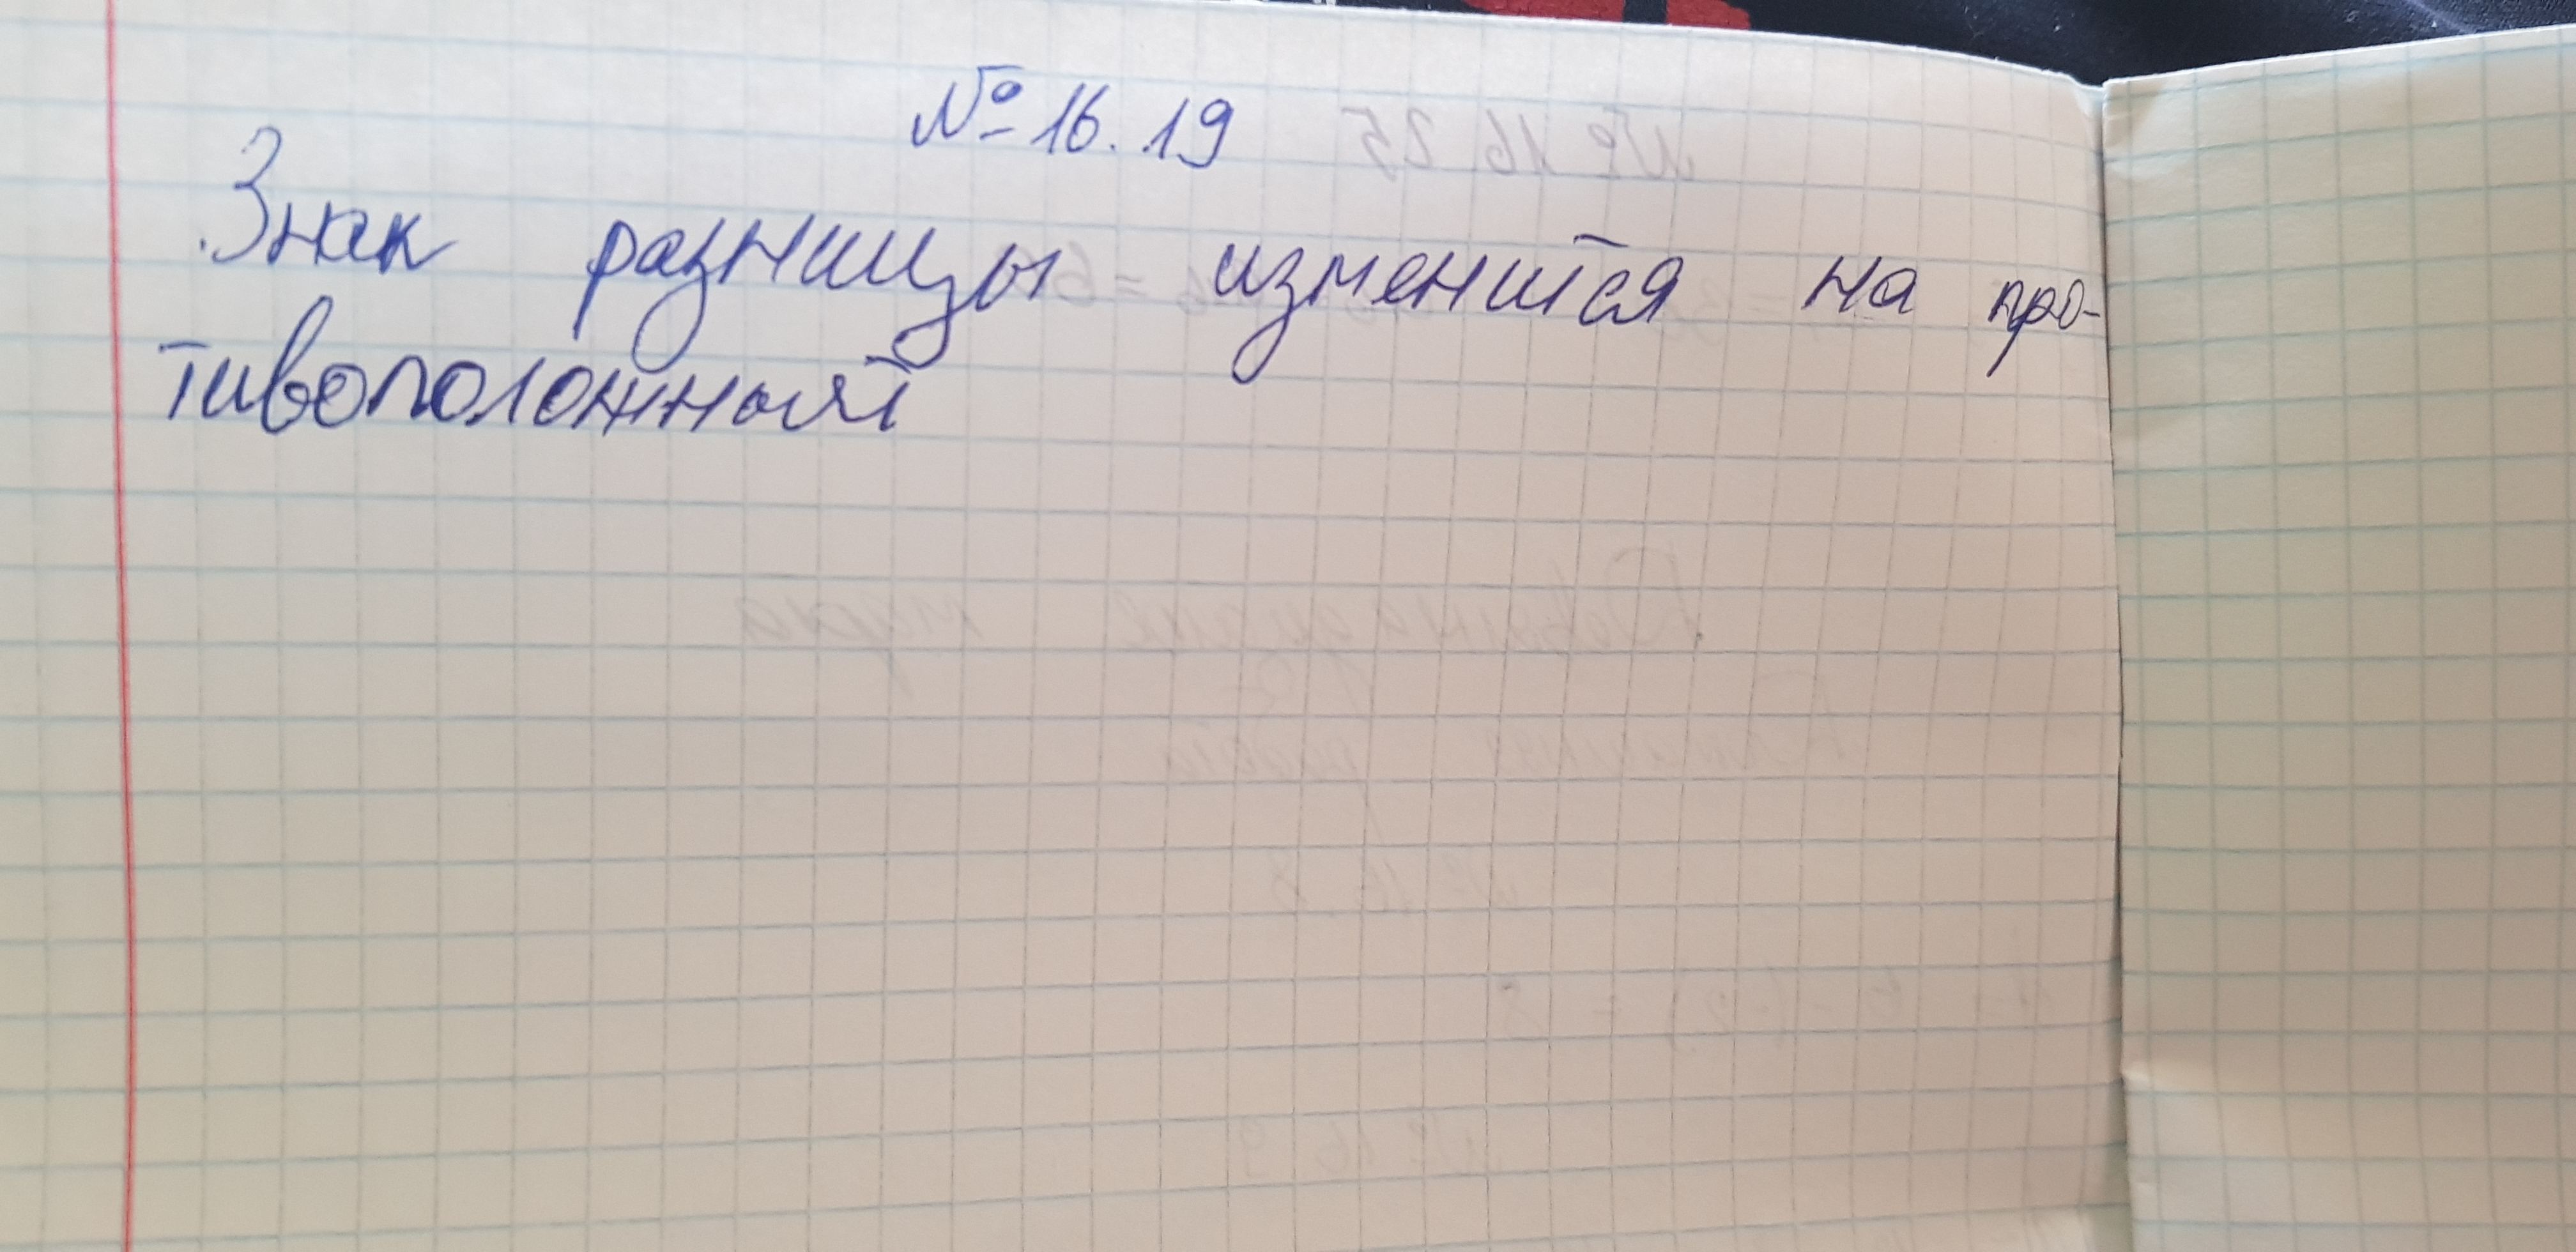 № 16.19
Знак разницы изменится на про-
тивоположный